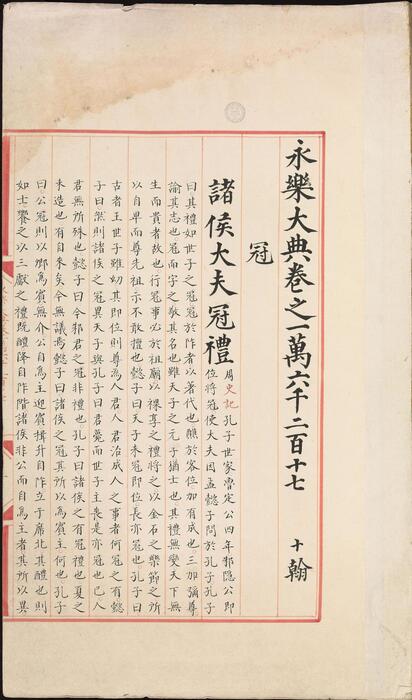 永樂大典卷之一萬六千二百十七 十翰
冠
諸侯大夫冠禮 周史記孔子世家魯定公四年邾隱公即
位將冠使大夫因孟懿子問於孔子孔子
曰其禮如世子之冠冠於阼者以著代也醮於客位加有成也三加彌尊
諭其志也冠而字之敬其名也雖天子之元子猶士也其禮無變天下無
生而貴者故也行冠事必於祖廟以祼享之禮將之以金石之樂節之所
以自卑而尊先祖示不敢擅也懿子曰天子未冠即位長亦冠也孔子曰
古者王世子雖幼其即位則尊為人君人君治成人之事者何冠之有懿
子曰然則諸侯之冠異天子與孔子曰君薨而世子主喪是亦冠也已人
君無所殊也懿子曰今邾君之冠非禮也孔子曰諸侯之有冠禮也夏之
末造也有自來矣今無譏焉懿子曰諸侯之冠其所以為賓主何也孔子
曰公冠則以卿為賓無介公自為主迎賓揖升自阼立于席北其醴也則
如士饗之以三獻之禮既醴降自阼階諸侯非公而自為主者其所以異